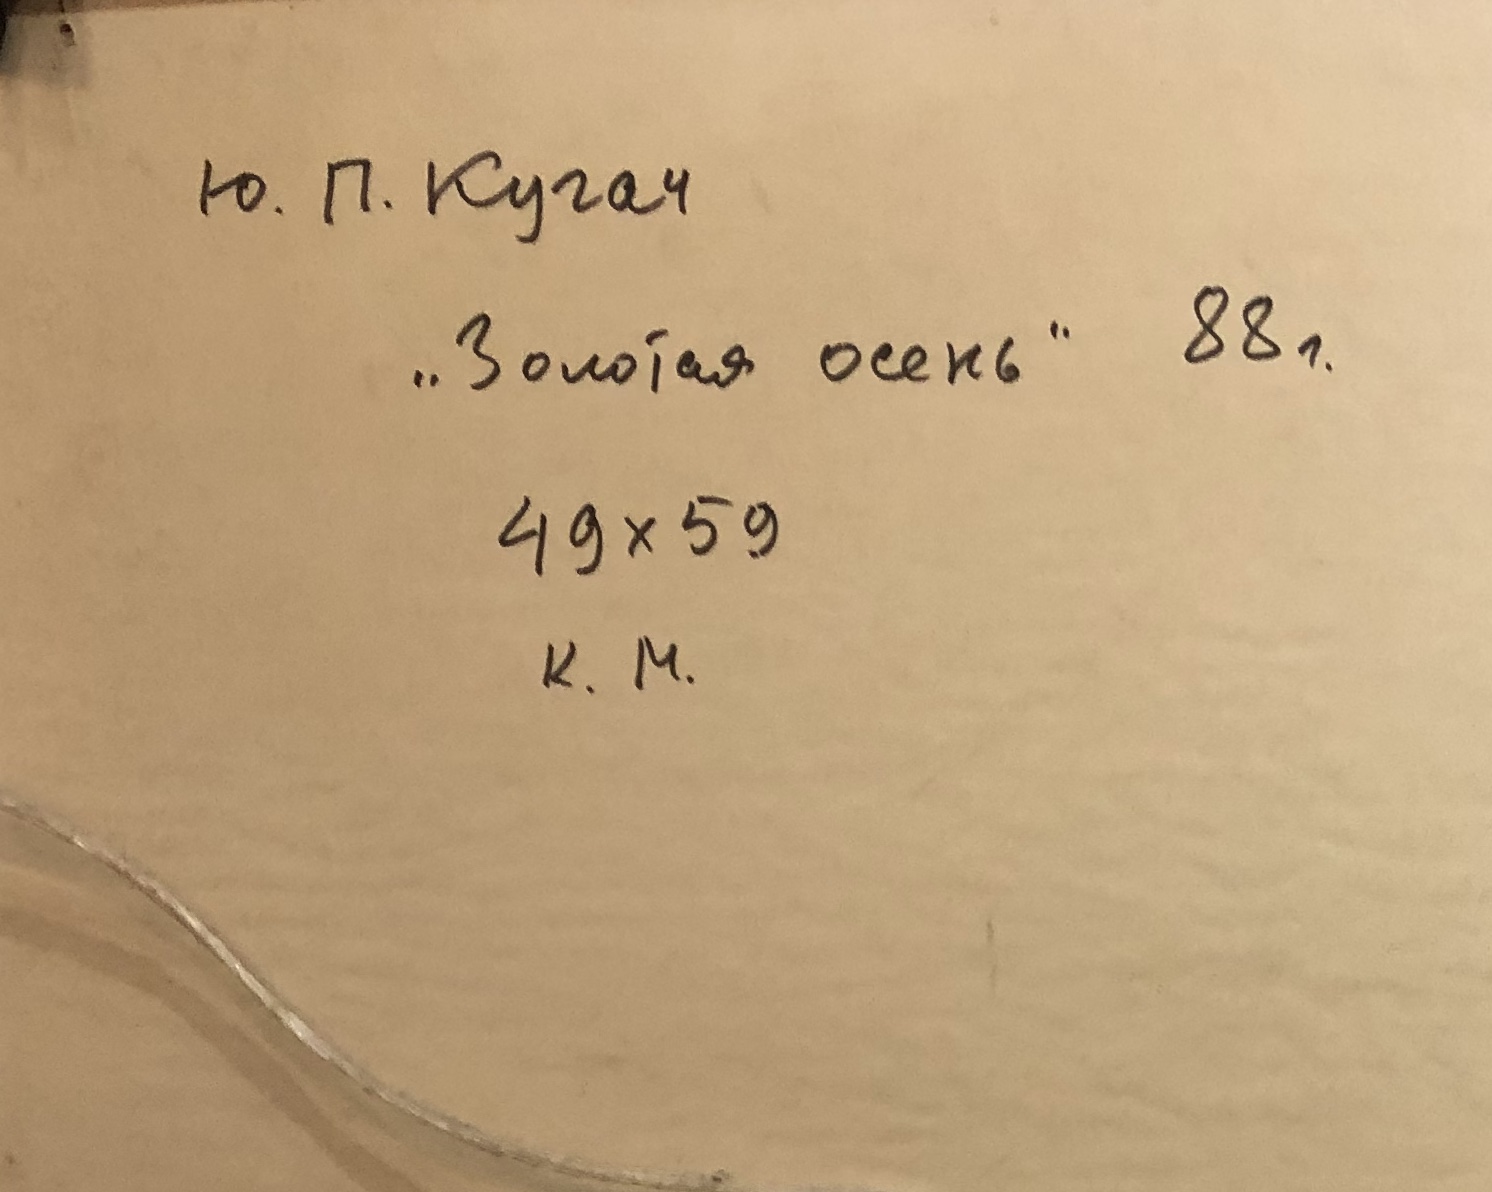 Ю. П. Кугач
„Золотая осень" 88 г.
49 x 59
К. М.